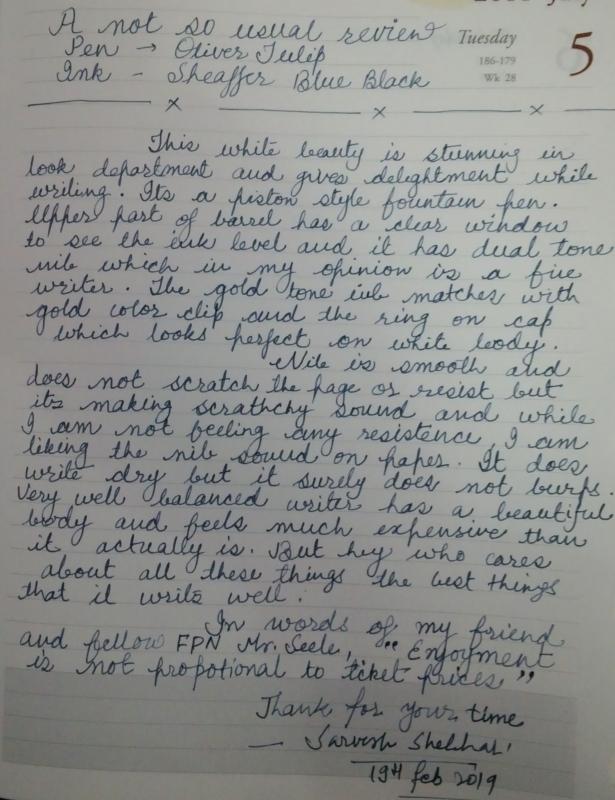 A not so usual review
Pen → Oliver Tulip
Ink - Sheaffer Blue Black
Tuesday
186-179
Wk 28
5
This white beauty is stunning in
look department and gives delightment while
writing. Its a piston style fountain pen.
Upper part of barrel has a clear window
to see the ink level and it has dual tone
nib which in my opinion is a fine
writer. The gold tone nib matches with
gold color clip and the ring on cap
which looks perfect on white body.
Nib is smooth and
does not scratch the page or resist but
its making scrathchy sound and while
I am not feeling any resistence, I am
liking the nib sound on paper. It does
write dry but it surely does not burps.
Very well balanced writer has a beautiful
body and feels much expensive than
it actually is. But hey who cares
about all these things the best things
that it write well.
In words of my friend
and fellow FPN Mr. Seele, "Enjoyment
is not propotional to ticket prices"
Thank for your time
— Sarvesh Shekhar
19th feb 2019